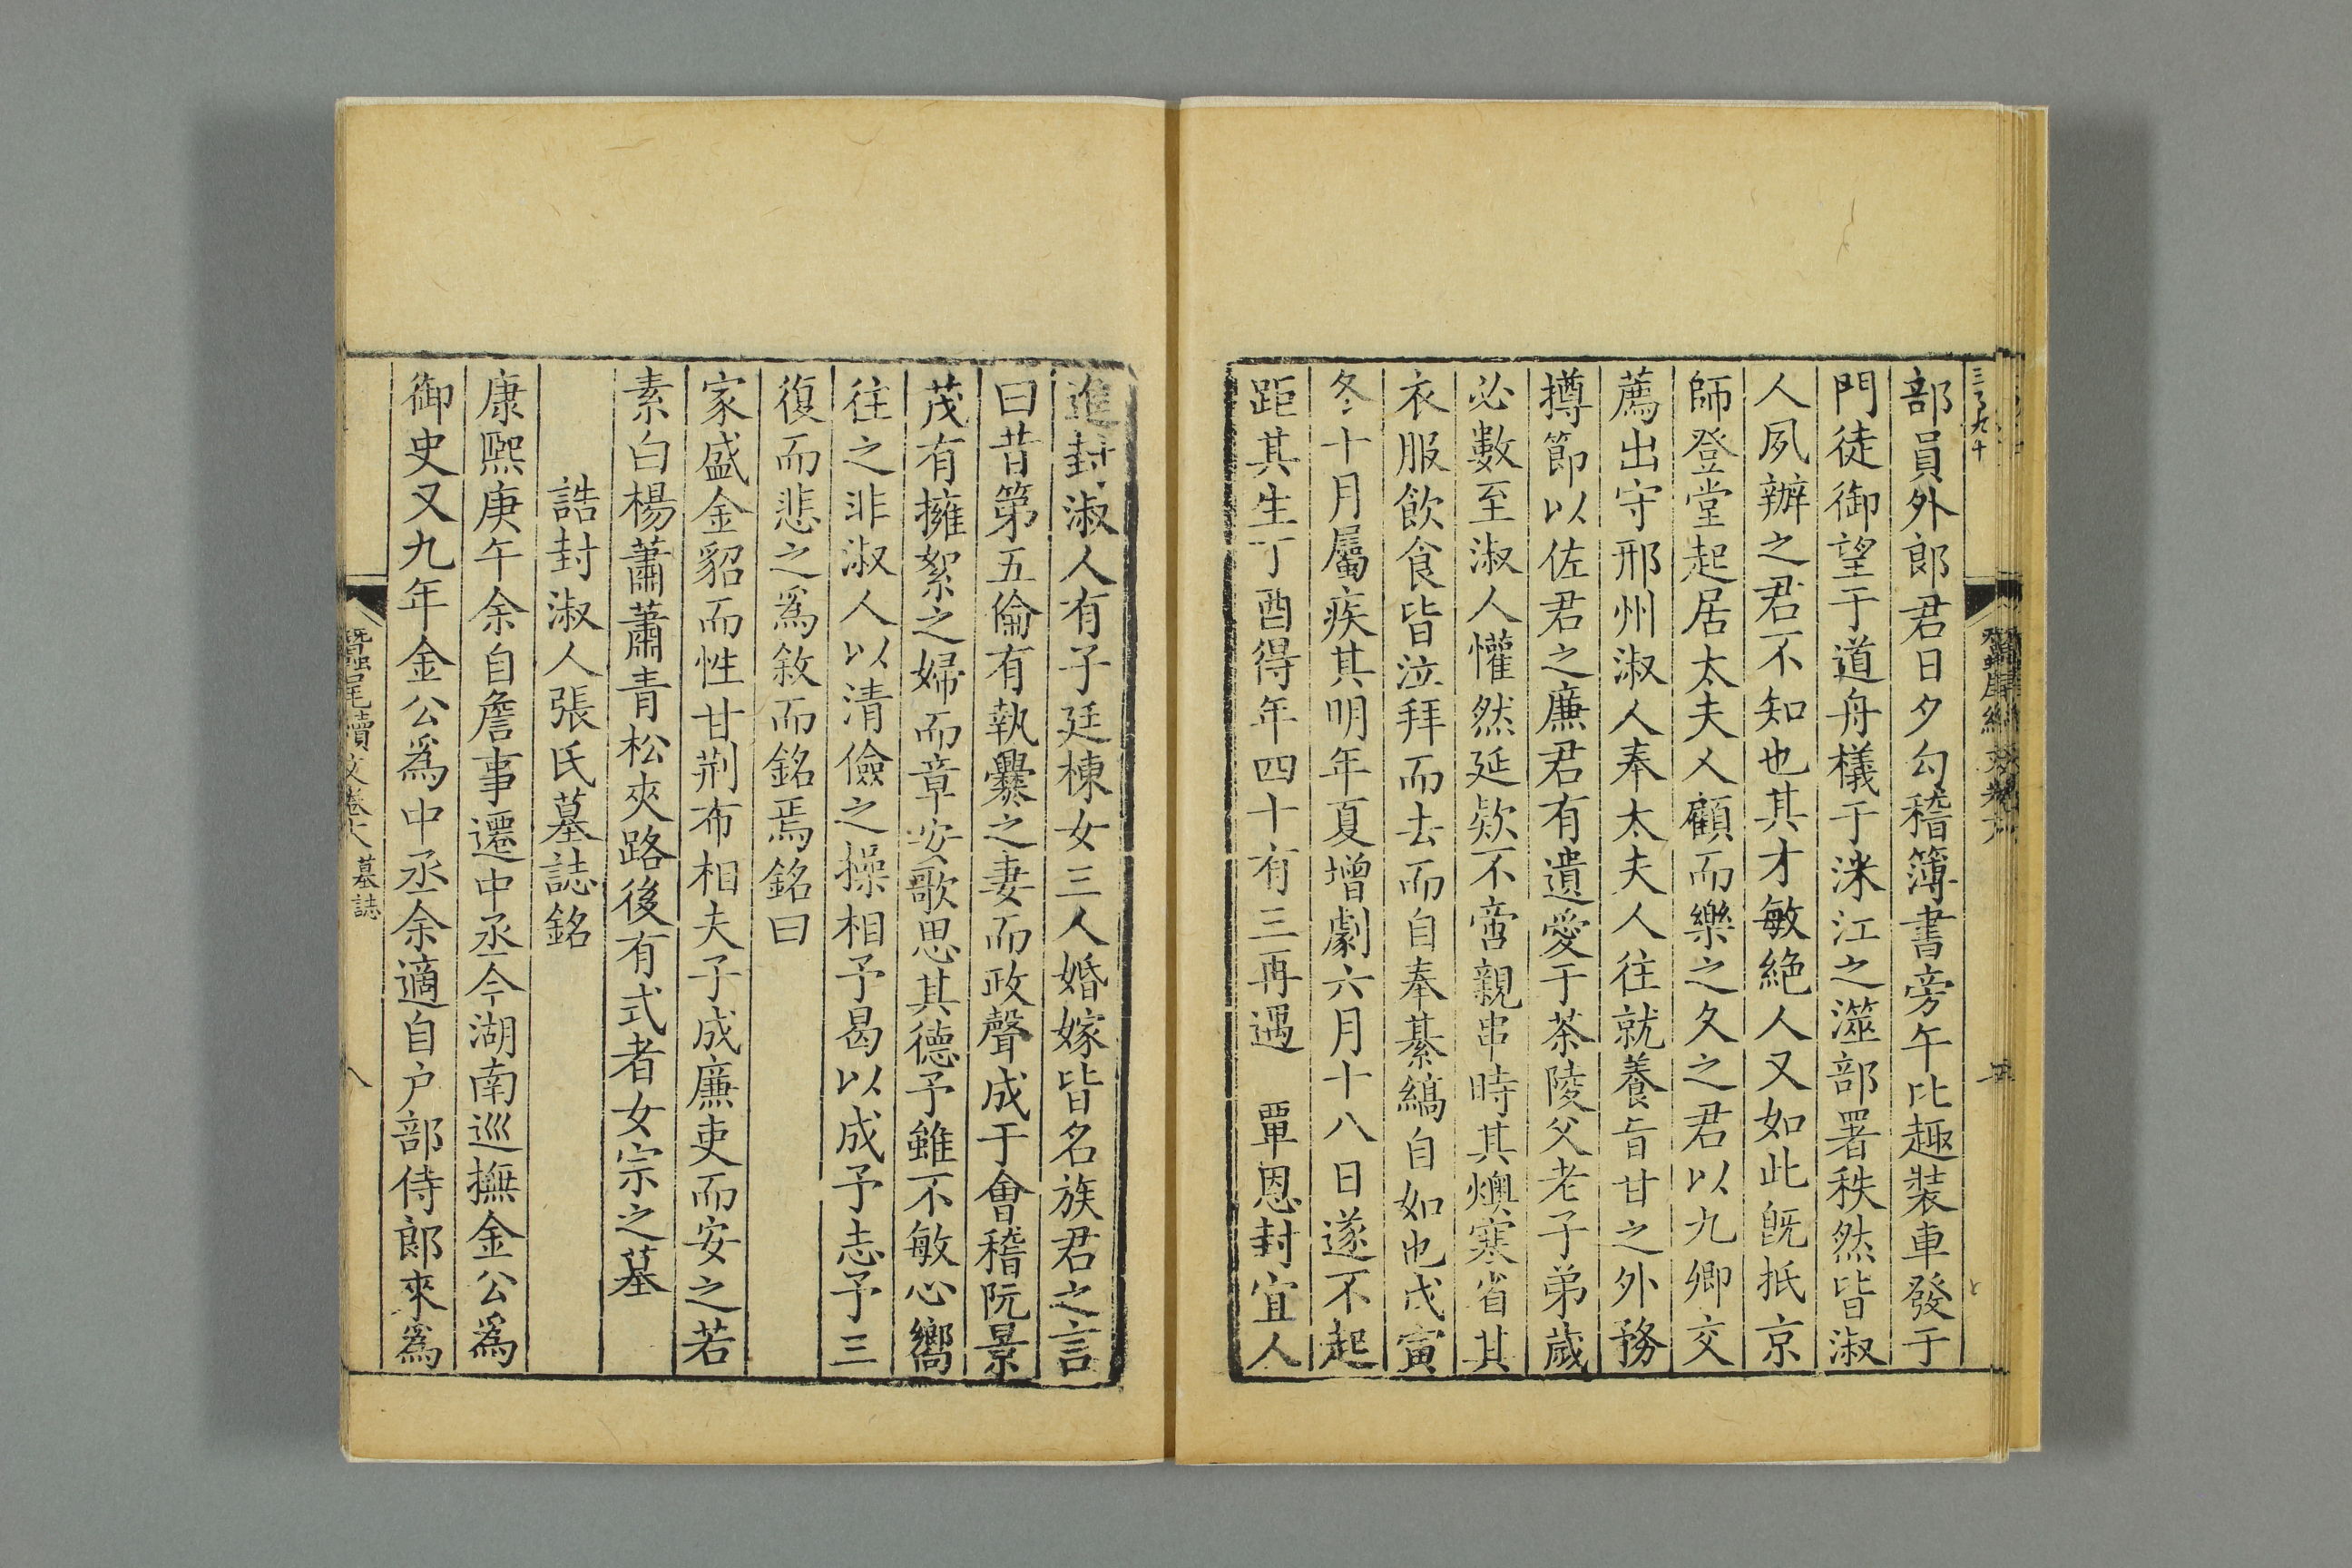 部員外郎君日夕勾稽簿書旁午比趣裝車發于
門徒御望于道舟檥于洣江之澨部署秩然皆淑
人夙辦之君不知也其才敏絕人又如此旣抵京
師登堂起居太夫人顧而樂之久之君以九卿交
薦出守邢州淑人奉太夫人往就養旨甘之外務
撙節以佐君之廉君有遺愛于茶陵父老子弟歲
必數至淑人懽然延欵不啻親串時其燠寒省其
衣服飲食皆泣拜而去而自奉綦縞自如也戊寅
冬十月屬疾其明年夏增劇六月十八日遂不起
距其生丁酉得年四十有三再遇 覃恩封宜人
進封淑人有子廷棟女三人婚嫁皆名族君之言
曰昔第五倫有執爨之妻而政聲成于會稽阮景
茂有擁絮之婦而章安歌思其德予雖不敏心嚮
往之非淑人以清儉之操相予曷以成予志予三
復而悲之爲敘而銘焉銘曰
家盛金貂而性甘荆布相夫子成廉吏而安之若
素白楊蕭蕭青松夾路後有式者女宗之墓
誥封淑人張氏墓誌銘
康熙庚午余自詹事遷中丞今湖南巡撫金公爲
御史又九年金公爲中丞余適自户部侍郎來爲
蠶尾續文卷 墓誌
八